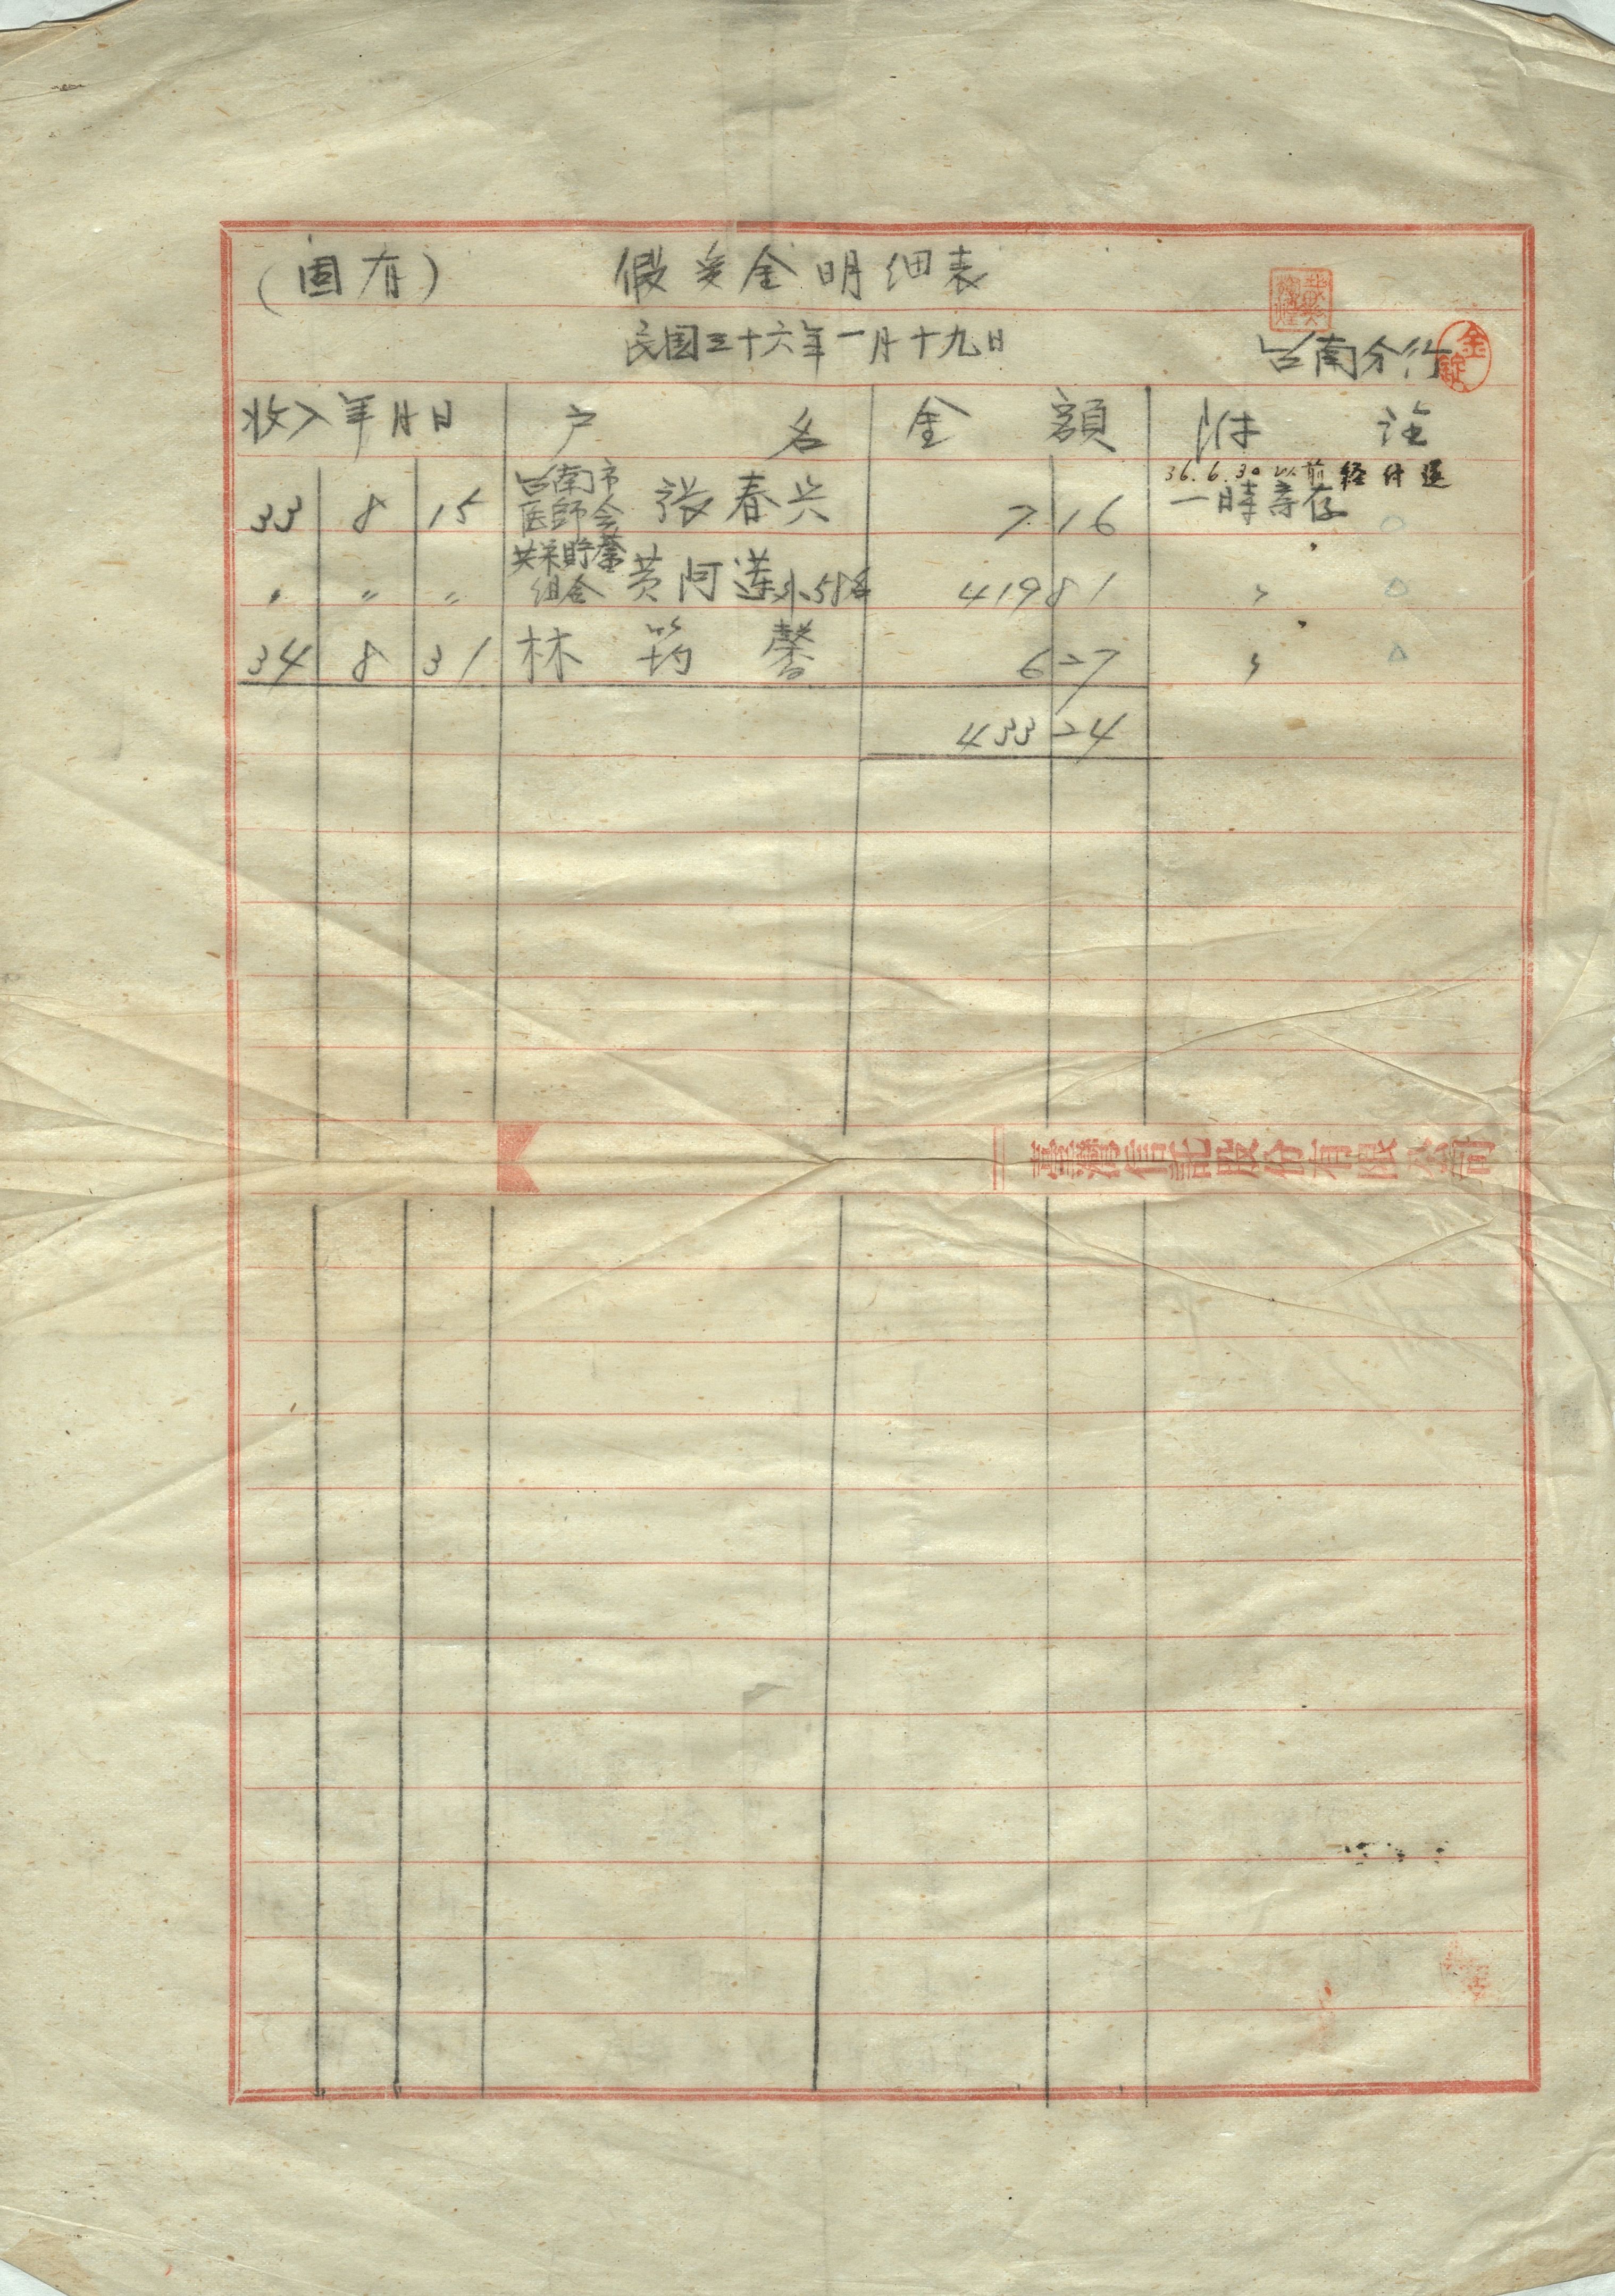 (固有) 假受金明细表
民国三十六年一月十九日
台南分行
金錠
收入年月日 户名 金額 附註
36.6.30以前経付還
33 8 15 台南市医師会 张春兴 7 16 一時寄存
共栄貯蓄組合
〃 〃 〃 黄阿莲外58名 419 81 〃
34 8 31 林筠馨 6 27 〃
433 24
臺灣信託股份有限公司